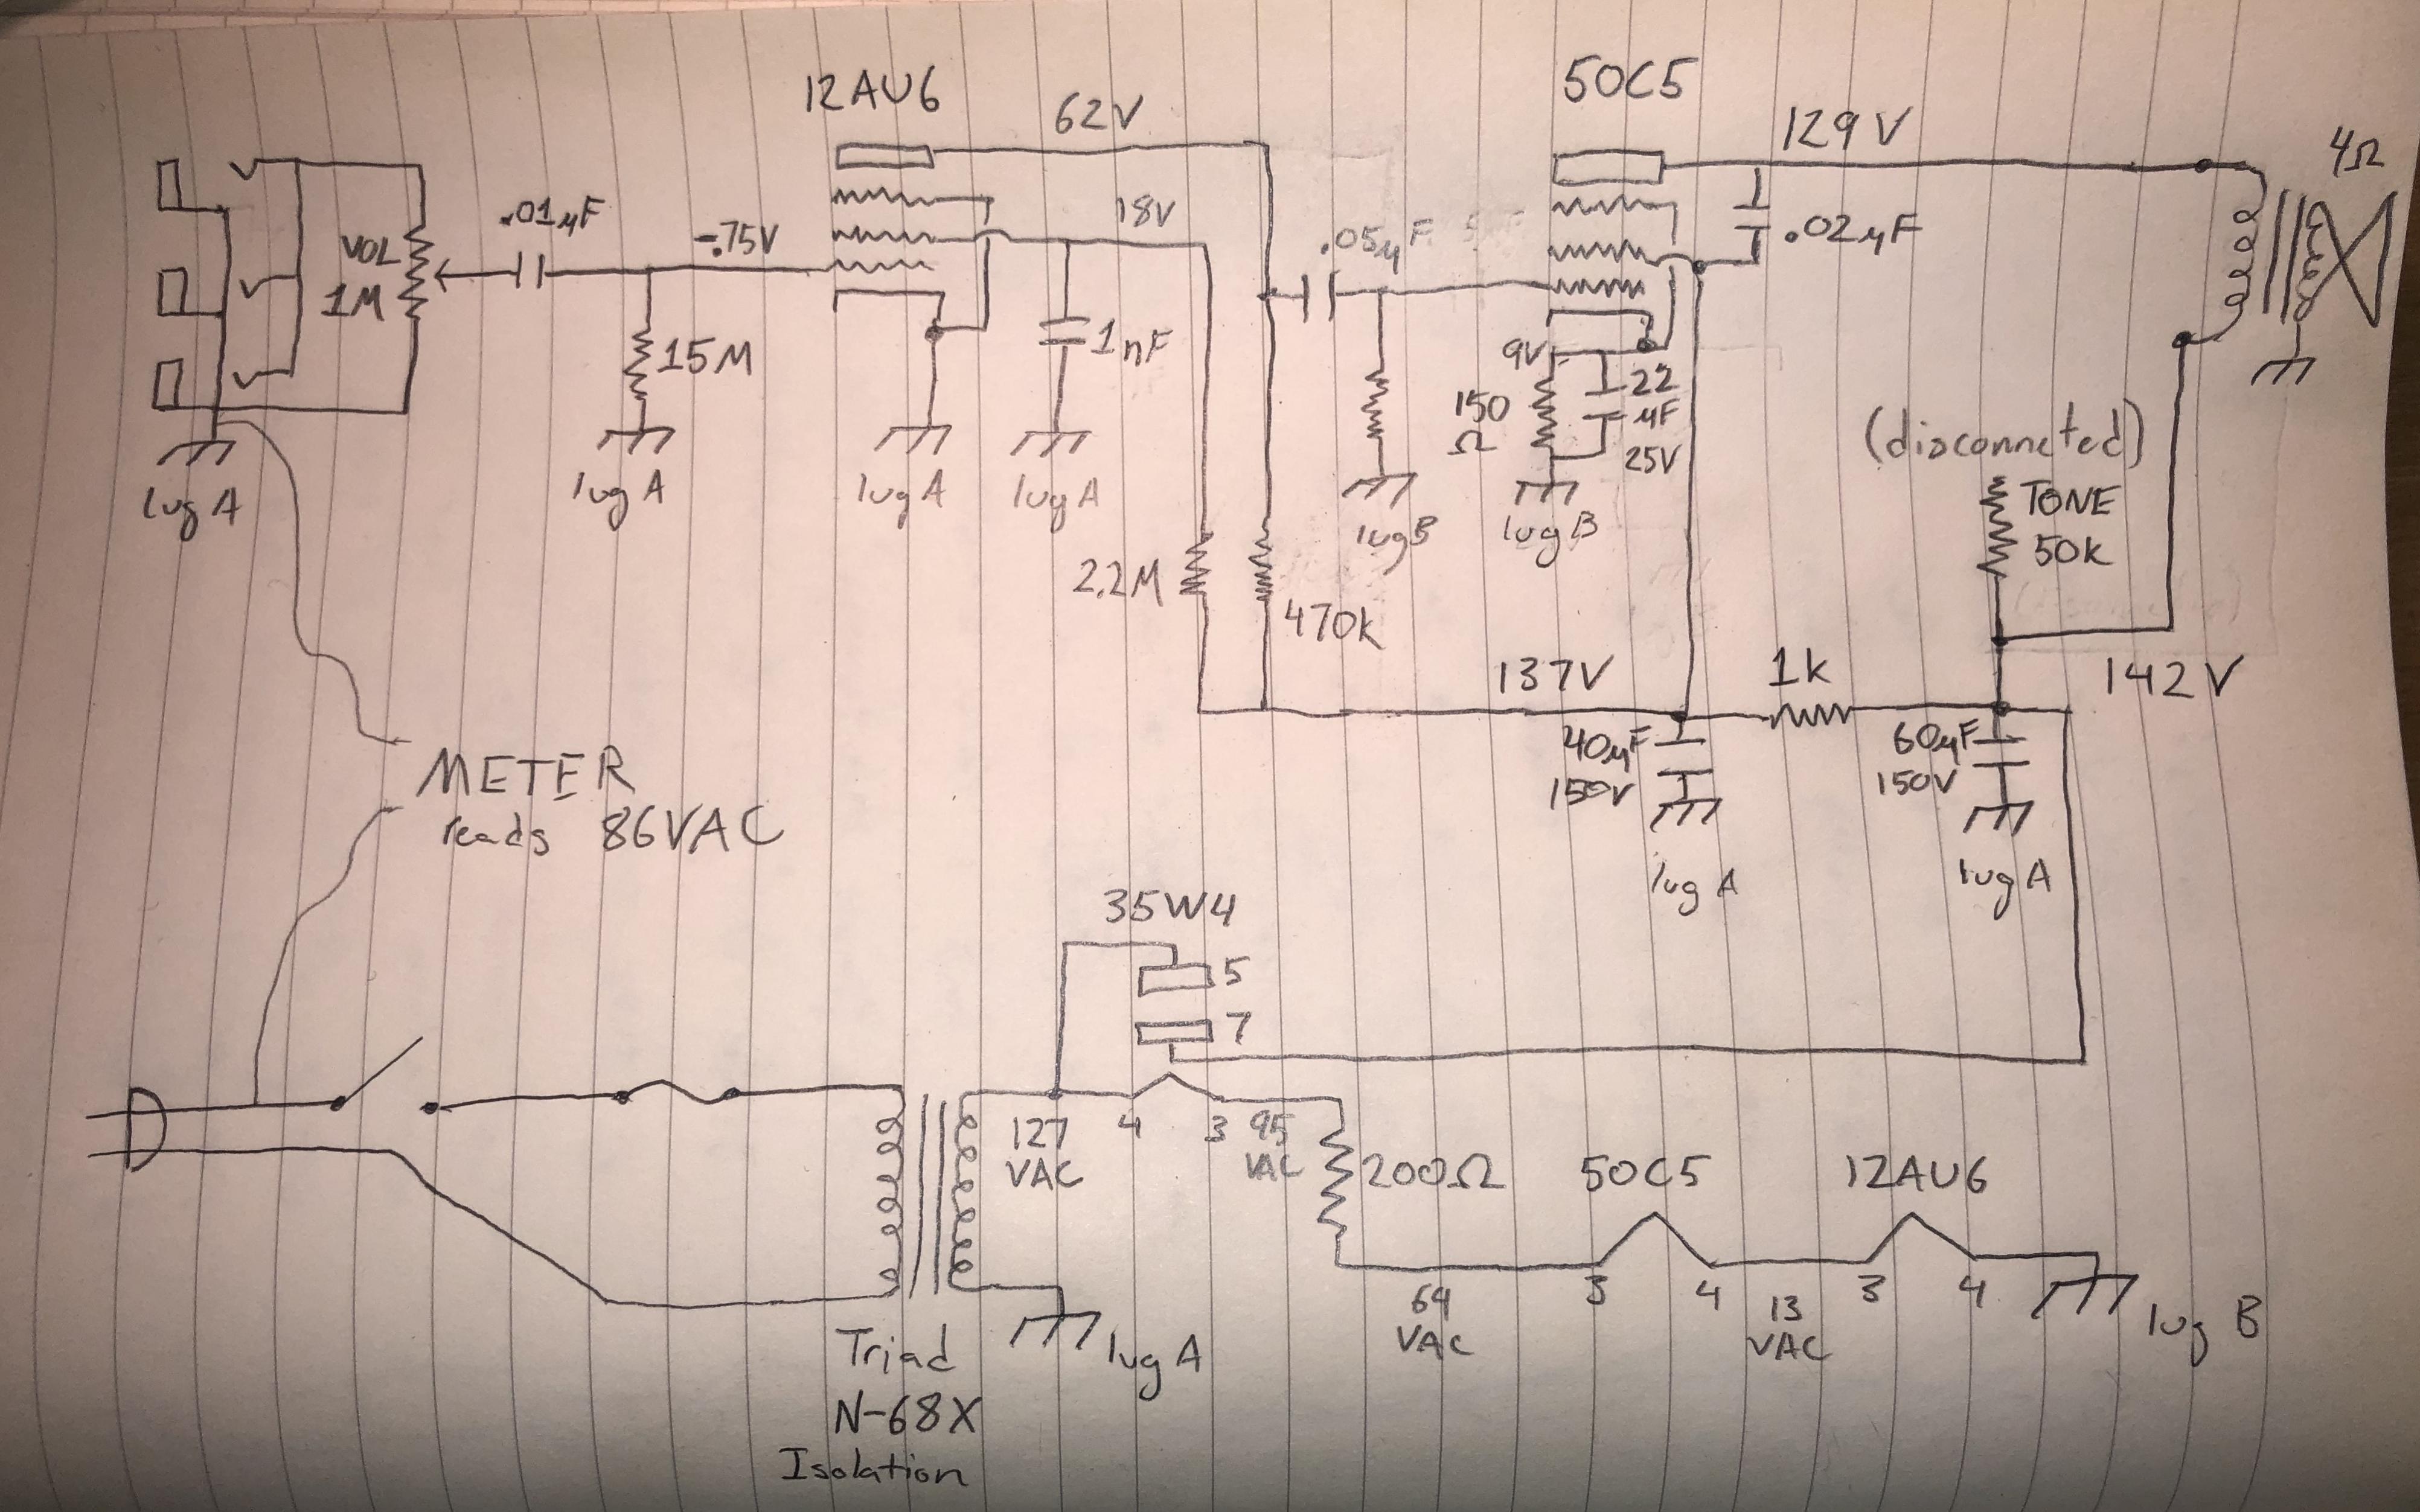 12AU6
62V
50C5
129V
4Ω
.01µF
-.75V
18V
.05µF
.02µF
VOL
1M
15M
1nF
9V
150
Ω
22
µF
25V
(disconneted)
TONE
50k
lug A
lug A
lug A
lug A
lug B
lug B
2.2M
470k
137V
1k
142V
40µF
150V
60µF
150V
lug A
lug A
METER
reads 86VAC
35W4
5
7
127
VAC
4
3
95
VAC
200Ω
50C5
12AU6
64
VAC
3
4
13
VAC
3
4
lug B
lug A
Triad
N-68X
Isolation